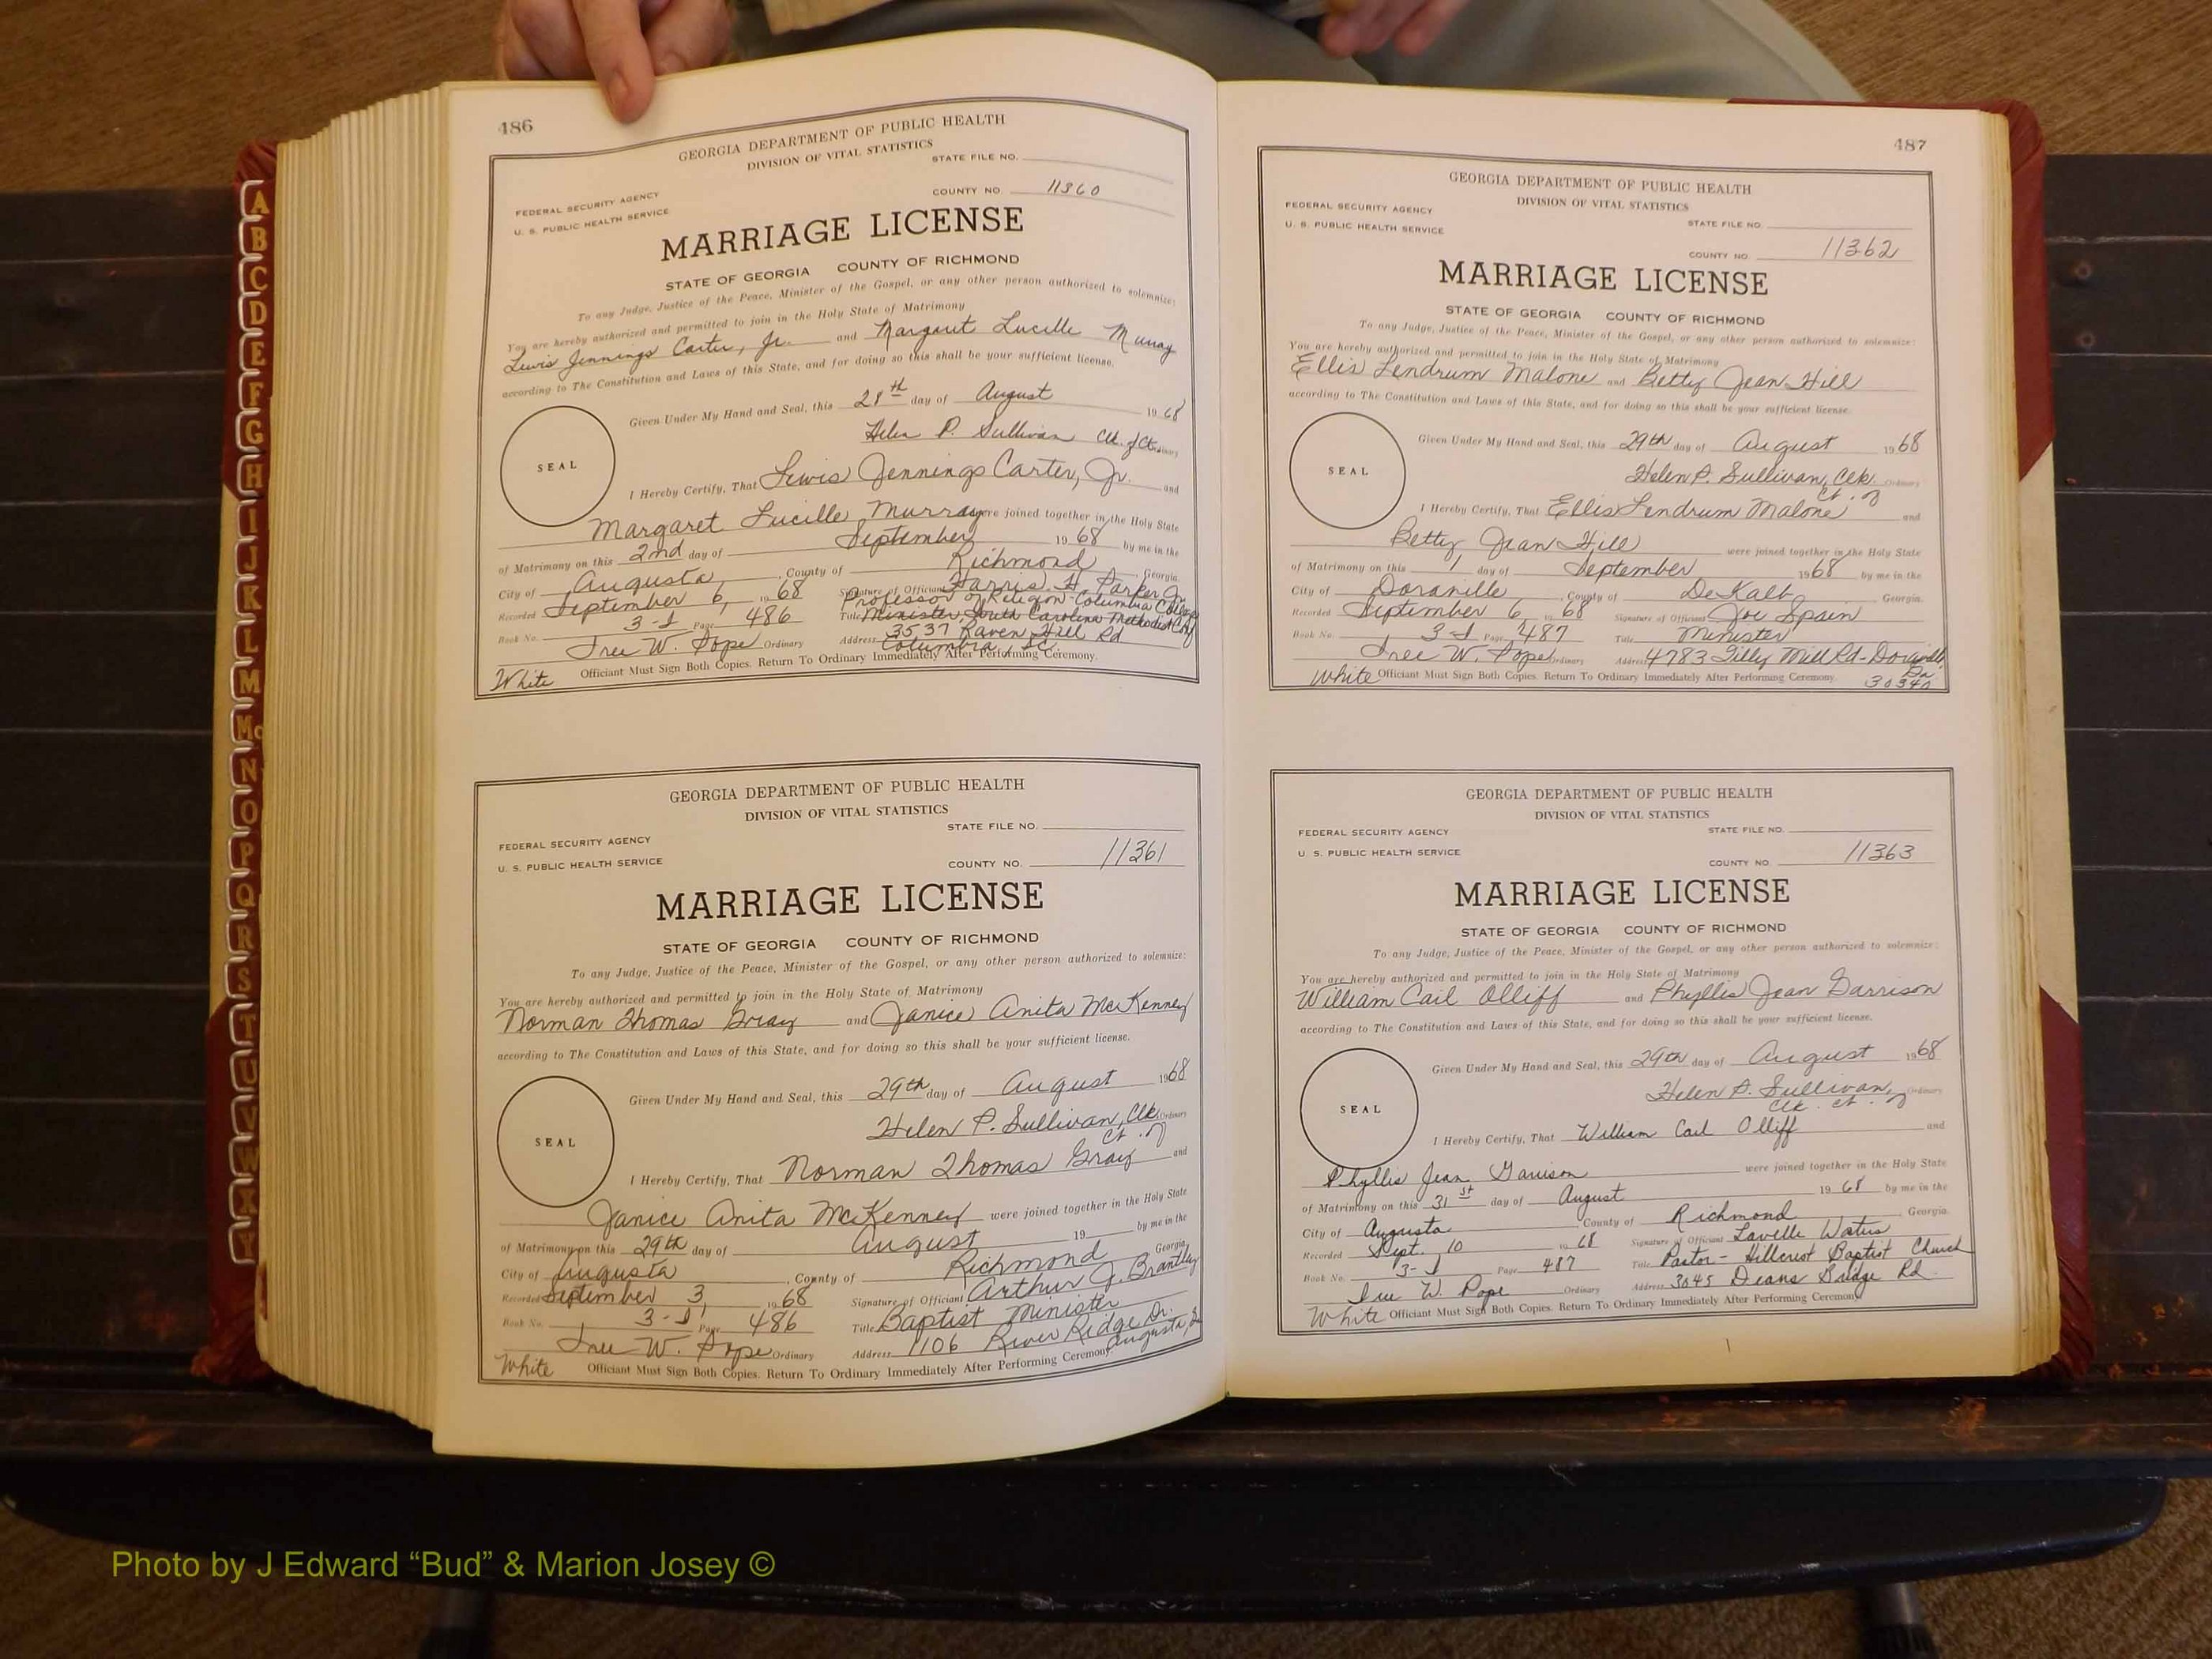 486
GEORGIA DEPARTMENT OF PUBLIC HEALTH
DIVISION OF VITAL STATISTICS
STATE FILE NO.
FEDERAL SECURITY AGENCY
COUNTY NO. 11360
U. S. PUBLIC HEALTH SERVICE
MARRIAGE LICENSE
STATE OF GEORGIA COUNTY OF RICHMOND
To any Judge, Justice of the Peace, Minister of the Gospel, or any other person authorized to solemnize:
You are hereby authorized and permitted to join in the Holy State of Matrimony
Lewis Jennings Carter, Jr. and Margaret Lucille Murray
according to The Constitution and Laws of this State, and for doing so this shall be your sufficient license.
Given Under My Hand and Seal, this 28th day of August 1968
Helen P. Sullivan Clk. of Ct. Ordinary
SEAL
I Hereby Certify, That Lewis Jennings Carter, Jr. and
Margaret Lucille Murray were joined together in the Holy State
of Matrimony on this 2nd day of September 1968 by me in the
City of Augusta, County of Richmond, Georgia.
Recorded September 6, 1968 Signature of Officiant Harris H. Parker Jr.
Professor of Religion-Columbia College
Book No. 3-I Page 486 Title Minister, South Carolina Methodist Conf
Iree W. Pope Ordinary Address 3537 Raven Hill Rd
Columbia, SC.
White Officiant Must Sign Both Copies. Return To Ordinary Immediately After Performing Ceremony.
GEORGIA DEPARTMENT OF PUBLIC HEALTH
DIVISION OF VITAL STATISTICS
STATE FILE NO.
FEDERAL SECURITY AGENCY
U. S. PUBLIC HEALTH SERVICE
COUNTY NO. 11361
MARRIAGE LICENSE
STATE OF GEORGIA COUNTY OF RICHMOND
To any Judge, Justice of the Peace, Minister of the Gospel, or any other person authorized to solemnize:
You are hereby authorized and permitted to join in the Holy State of Matrimony
Norman Thomas Gray and Janice Anita McKenney
according to The Constitution and Laws of this State, and for doing so this shall be your sufficient license.
Given Under My Hand and Seal, this 29th day of August 1968
Helen P. Sullivan, Clk. Ordinary
Ct. of
SEAL
I Hereby Certify, That Norman Thomas Gray and
Janice Anita McKenney were joined together in the Holy State
of Matrimony on this 29th day of August 19 by me in the
City of Augusta, County of Richmond Georgia.
Recorded September 3 1968 Signature of Officiant Arthur J. Brantley
Book No. 3-I, Page 486 Title Baptist Minister
Iree W. Pope Ordinary Address 1106 River Ridge Dr.
Augusta, Ga
White Officiant Must Sign Both Copies. Return To Ordinary Immediately After Performing Ceremony.
487
GEORGIA DEPARTMENT OF PUBLIC HEALTH
DIVISION OF VITAL STATISTICS
FEDERAL SECURITY AGENCY
STATE FILE NO.
U. S. PUBLIC HEALTH SERVICE
COUNTY NO. 11362
MARRIAGE LICENSE
STATE OF GEORGIA COUNTY OF RICHMOND
To any Judge, Justice of the Peace, Minister of the Gospel, or any other person authorized to solemnize:
You are hereby authorized and permitted to join in the Holy State of Matrimony
Ellis Lendrum Malone and Betty Jean Hill
according to The Constitution and Laws of this State, and for doing so this shall be your sufficient license.
Given Under My Hand and Seal, this 29th day of August 1968
Helen P. Sullivan, Clk. Ordinary
Ct. of
SEAL
I Hereby Certify, That Ellis Lendrum Malone and
Betty Jean Hill were joined together in the Holy State
of Matrimony on this 1 day of September 1968 by me in the
City of Doraville, County of DeKalb, Georgia.
Recorded September 6, 1968 Signature of Officiant Joe Spain
Book No. 3-I Page 487 Title Minister
Iree W. Pope Ordinary Address 4783 Tilly Mill Rd-Doraville,
Ga
30340
White Officiant Must Sign Both Copies. Return To Ordinary Immediately After Performing Ceremony.
GEORGIA DEPARTMENT OF PUBLIC HEALTH
DIVISION OF VITAL STATISTICS
FEDERAL SECURITY AGENCY
STATE FILE NO.
U. S. PUBLIC HEALTH SERVICE
COUNTY NO. 11363
MARRIAGE LICENSE
STATE OF GEORGIA COUNTY OF RICHMOND
To any Judge, Justice of the Peace, Minister of the Gospel, or any other person authorized to solemnize:
You are hereby authorized and permitted to join in the Holy State of Matrimony
William Cail Olliff and Phyllis Jean Garrison
according to The Constitution and Laws of this State, and for doing so this shall be your sufficient license.
Given Under My Hand and Seal, this 29th day of August 1968
Helen P. Sullivan, Ordinary
Clk. Ct. of
SEAL
I Hereby Certify, That William Cail Olliff and
Phyllis Jean Garrison were joined together in the Holy State
of Matrimony on this 31st day of August 1968 by me in the
City of Augusta, County of Richmond, Georgia.
Recorded Sept. 10 1968 Signature of Officiant Lavelle Waters
Book No. 3-I Page 487 Title Pastor - Hillcrest Baptist Church
Iree W. Pope Ordinary Address 3045 Deans Bridge Rd.
White Officiant Must Sign Both Copies. Return To Ordinary Immediately After Performing Ceremony
A
B
C
D
E
F
G
H
I
J
K
L
M
Mc
N
O
P
Q
R
S
T
U
V
W
X
Y
Photo by J Edward “Bud” & Marion Josey ©